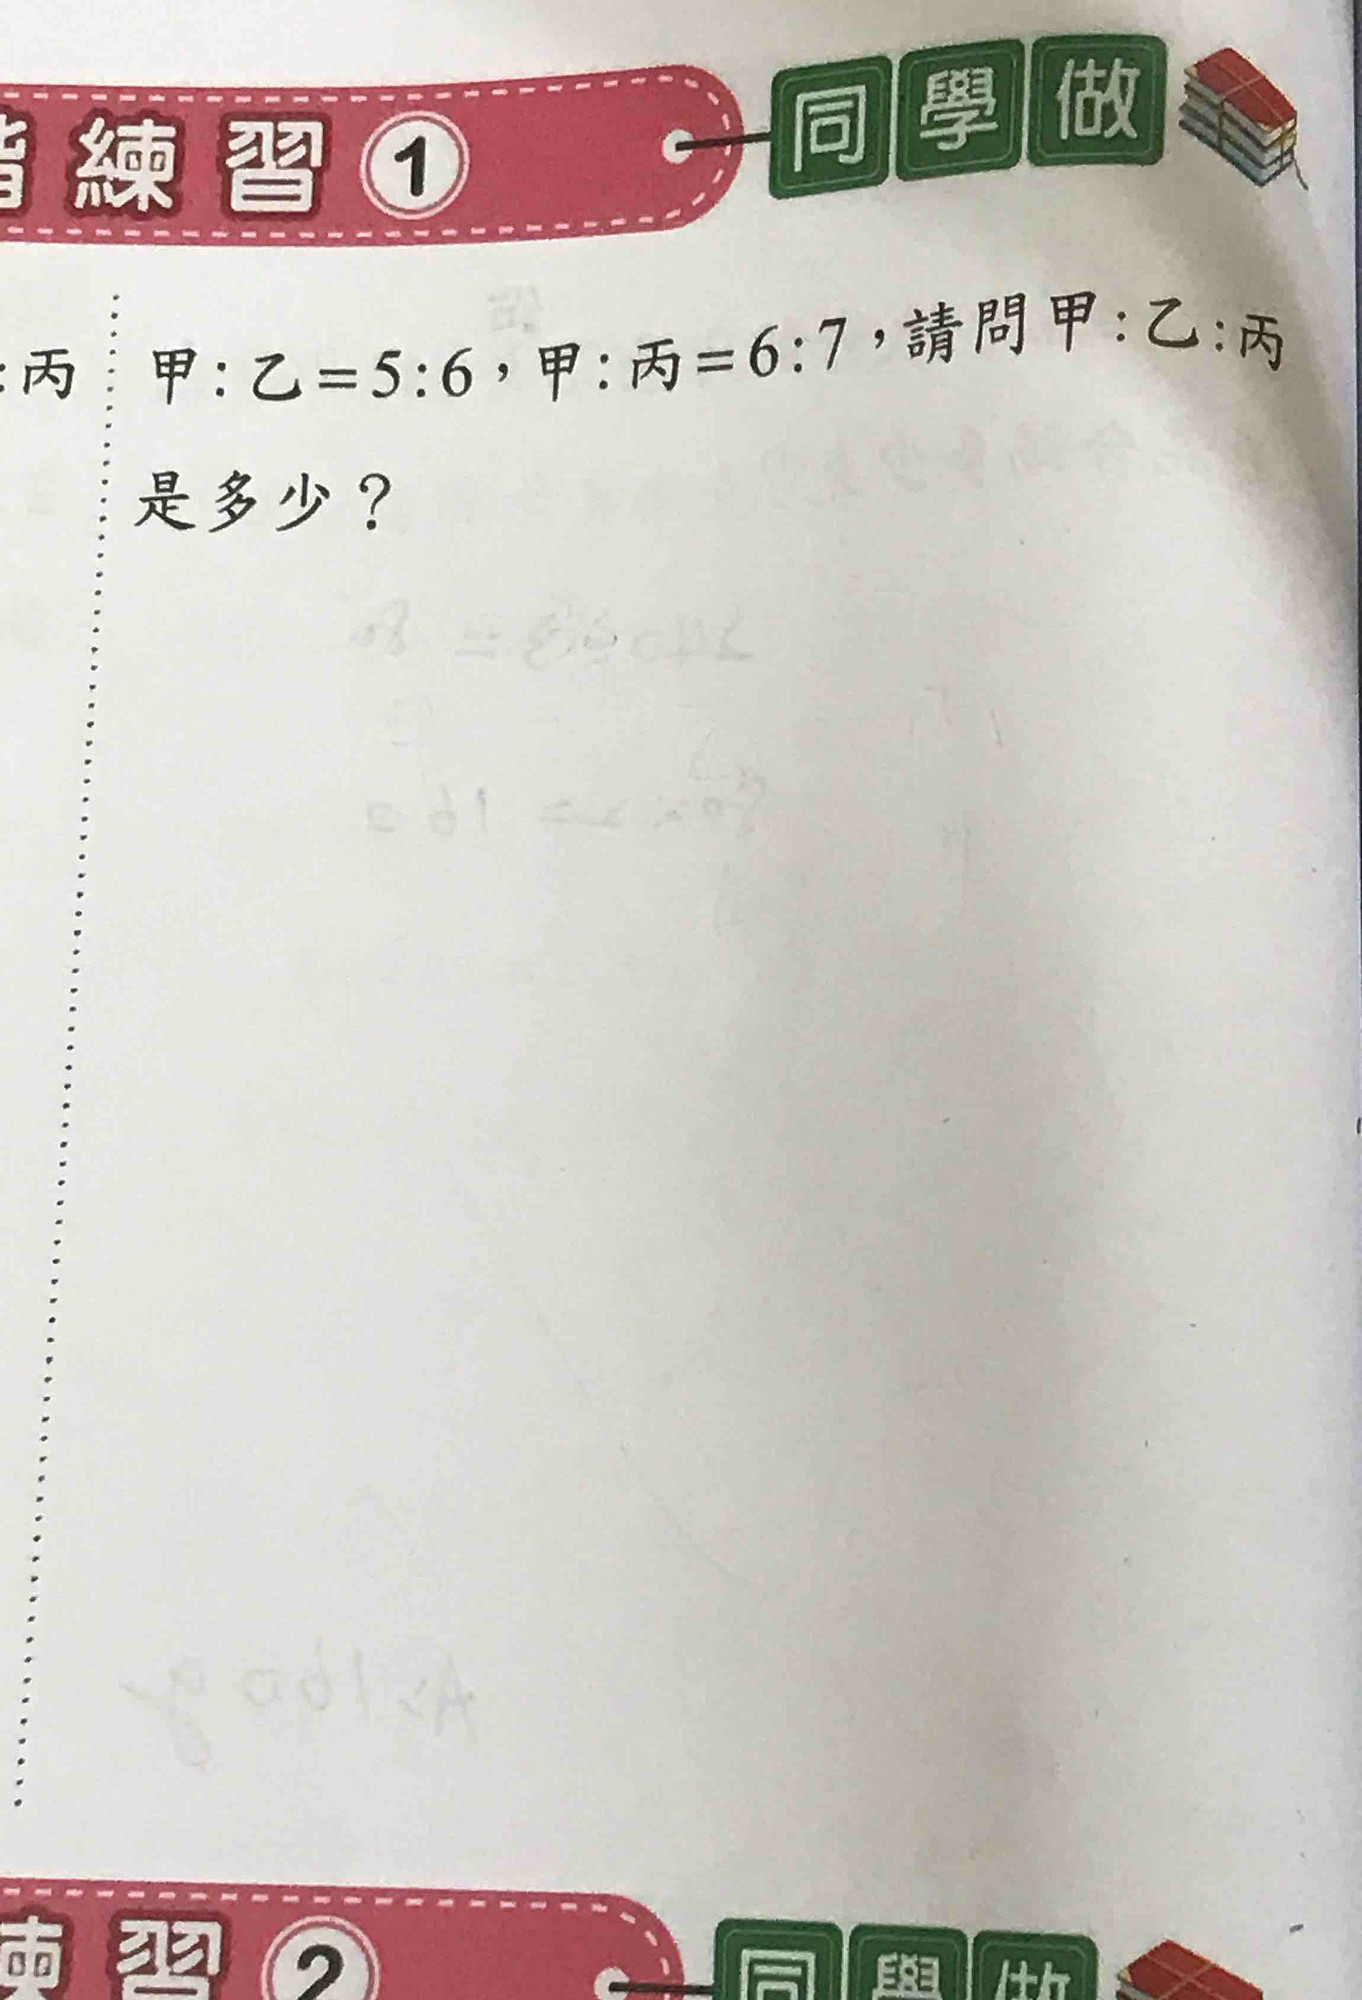 練習1 同學做
:丙
甲:乙=5:6，甲:丙=6:7，請問甲:乙:丙
是多少？
240÷3=80
80×2=160
A:160g
練習2 同學做